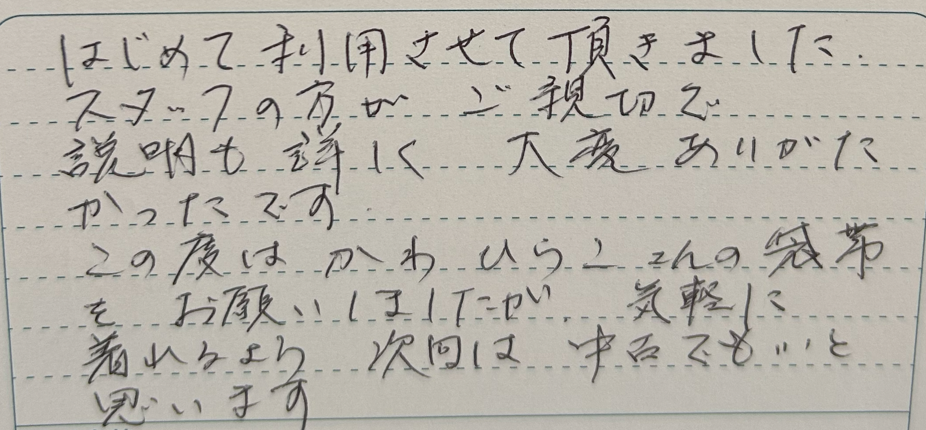 はじめて利用させて頂きました.
スタッフの方が ご親切で
説明も詳しく 大変ありがた
かったです.
この度は かわひらこさんの袋帯
を お願いしましたが、気軽に
着れるよう 次回は 中古でもいいと
思います